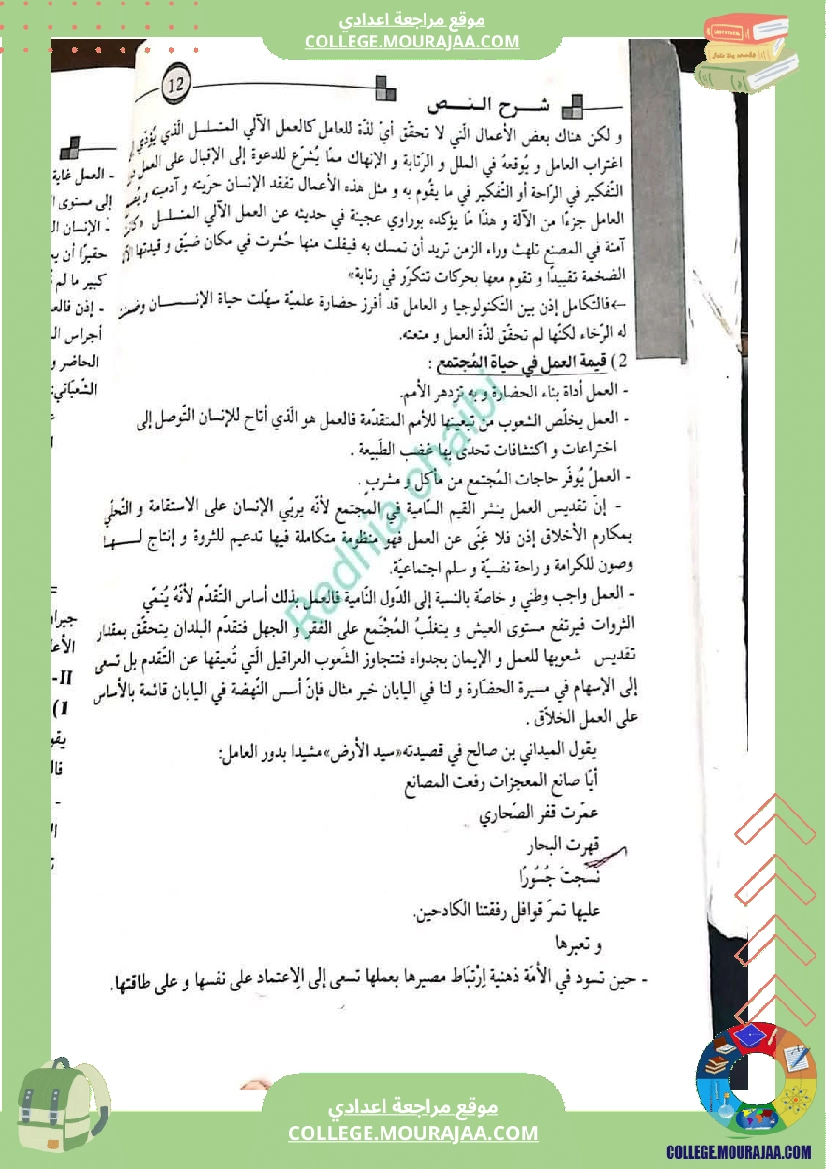 موقع مراجعة اعدادي
COLLEGE.MOURAJAA.COM
12
شرح النص
و لكن هناك بعض الأعمال الّتي لا تحقّق أيّ لذّة للعامل كالعمل الآلي المتسلسل الّذي يُؤذي
اغتراب العامل و يُوقعهُ في الملل و الرّتابة و الإنهاك ممّا يُشرّع للدعوة إلى الإقبال على العمل
التّفكير في الرّاحة أو التّفكير في ما يقُوم به و مثل هذه الأعمال تفقد الإنسان حرّيته و آدميته
العامل جزءًا من الآلة و هذا مَا يؤكده بوراوي عجينة في حديثه عن العمل الآلي المتسلسل
آمنة في المصنع تلهث وراء الزمن تريد أن تمسك به فيفلت منها حُشرت في مكان ضيّق و قيدتها
الضخمة تقييدًا و تقوم معها بحركات تتكرّر في رتابة»
←فالتّكامل إذن بين التّكنولوجيا و العامل قد أفرز حضارة علميّة سهّلت حياة الإنسان
له الرّخاء لكنّها لم تحقّق لذّة العمل و متعته.
2) قيمة العمل في حياة المُجتمع :
- العمل أداة بناء الحضارة و به تزدهر الأمم.
- العمل يخلّص الشعوب من تبعيتها للأمم المتقدّمة فالعمل هو الّذي أتاح للإنسان التّوصل إلى
اختراعات و اكتشافات تحدّى بها غضب الطّبيعة .
- العملُ يُوفّر حاجات المُجتمع من مأكل و مشربٍ .
- إنّ تقديس العمل ينشر القيم السّامية في المجتمع لأنّه يربّي الإنسان على الاستقامة و التّحلّي
بمكارم الأخلاق إذن فلا غِنًى عن العمل فهو منظومة متكاملة فيها تدعيم للثروة و إنتاج لها
وصون للكرامة و راحة نفسيّة و سلم اجتماعيّة.
- العمل واجب وطني و خاصّة بالنسبة إلى الدّول النّامية فالعمل بذلك أساس التّقدّم لأنّهُ يُنمّي
الثروات فيرتفع مستوى العيش و يتغلّبُ المُجْتَمع على الفقر و الجهل فتقدّم البلدان يتحقّق بمقدار
تقديس شعوبها للعمل و الإيمان بجدواه فتتجاوز الشّعوب العراقيل الّتي تُعيقها عن التّقدم بل تسعى
إلى الإسهام في مسيرة الحضَارة و لنا في اليابان خير مثال فإنّ أسس النّهضة في اليابان قائمة بالأساس
على العمل الخلاّق .
يقول الميداني بن صالح في قصيدته«سيد الأرض»مشيدا بدور العامل:
أيّا صانع المعجزات رفعت المصانع
عمّرت قفر الصّحاري
قهرت البحار
نسَجتَ جُسُورًا
عليها تمرّ قوافل رفقتنا الكادحين.
و تعبرها
- حين تسود في الأمّة ذهنية اِرْتبَاط مصيرها بعملها تسعى إلى الاِعتماد على نفسها و على طاقتها.
- العمل غاية
إلى مستوى
- الإنسان
حقيرًا أن
كبير ما لم
- إذن
أجراس
الحاضر و
جبران
II-
1)
Radhia chaibi
موقع مراجعة اعدادي
COLLEGE.MOURAJAA.COM
COLLEGE.MOURAJAA.COM